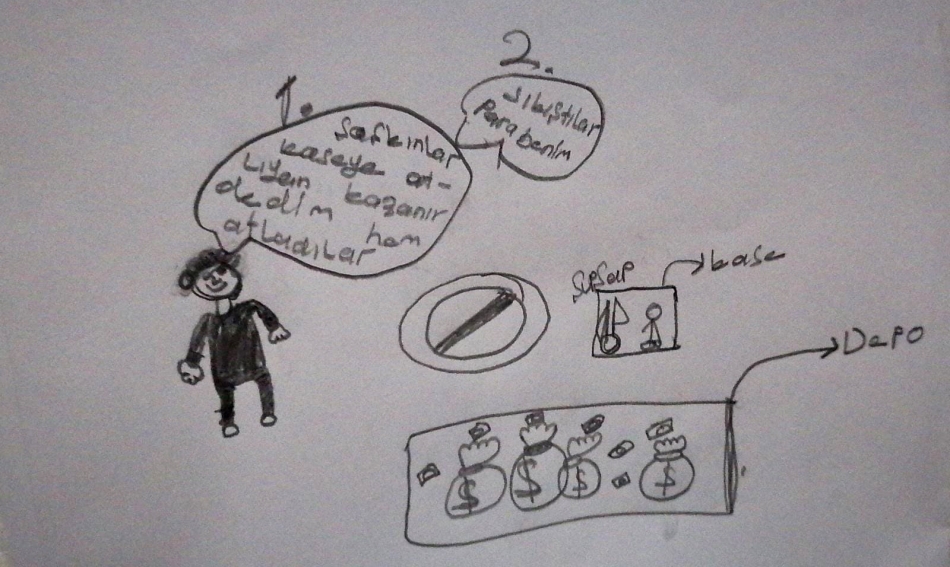 1.
Safkınlar
kaseye at-
Liyan kazanır
dedim hem
atladılar
2.
sıkıştılar
para benim
kase
Depo
$
$
$
$